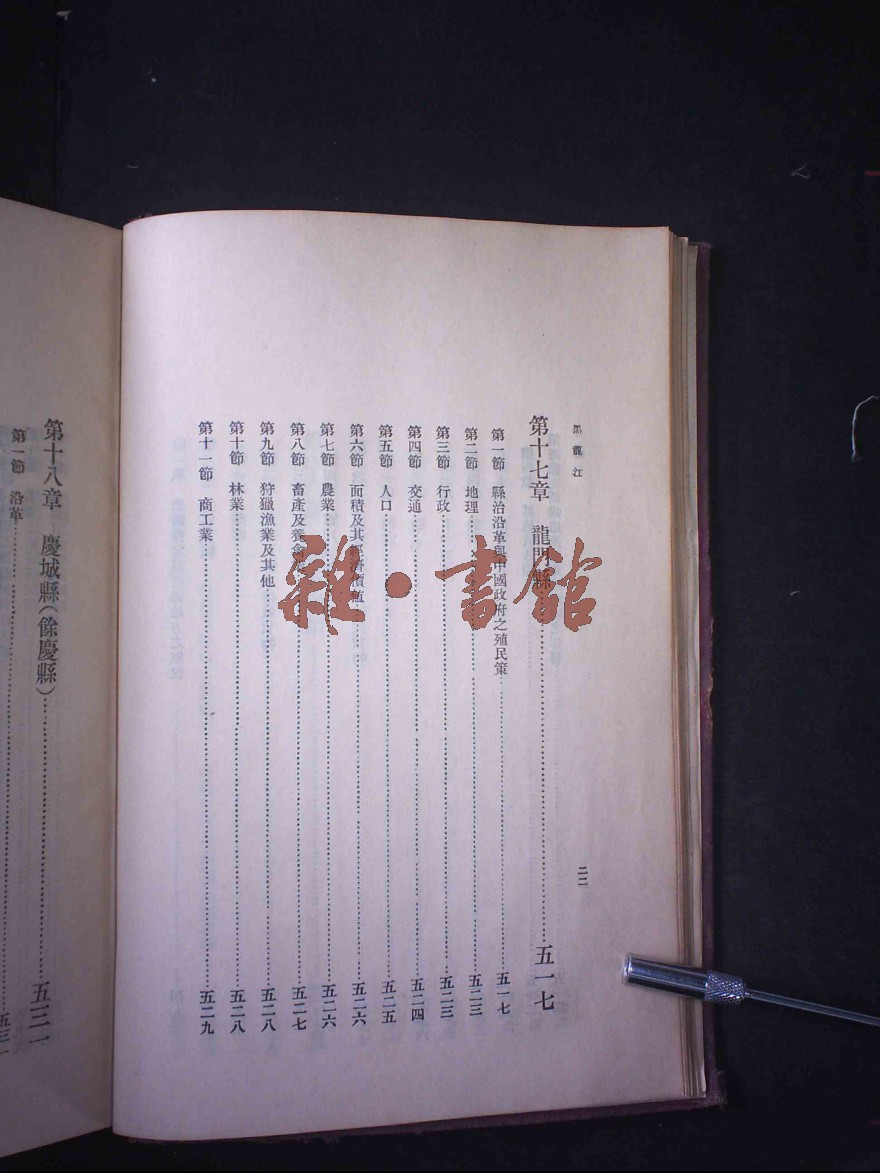 黑龍江
二二
第十七章 龍門縣 五一七
第一節 縣治沿革與中國政府之殖民策 五一七
第二節 地理 五二三
第三節 行政 五二三
第四節 交通 五二四
第五節 人口 五二五
第六節 面積及其經濟價値 五二六
第七節 農業 五二六
第八節 畜產及養禽 五二七
第九節 狩獵漁業及其他 五二八
第十節 林業 五二八
第十一節 商工業 五二九
第十八章 慶城縣(餘慶縣) 五三一
第一節 沿革 五三一
雜·書館